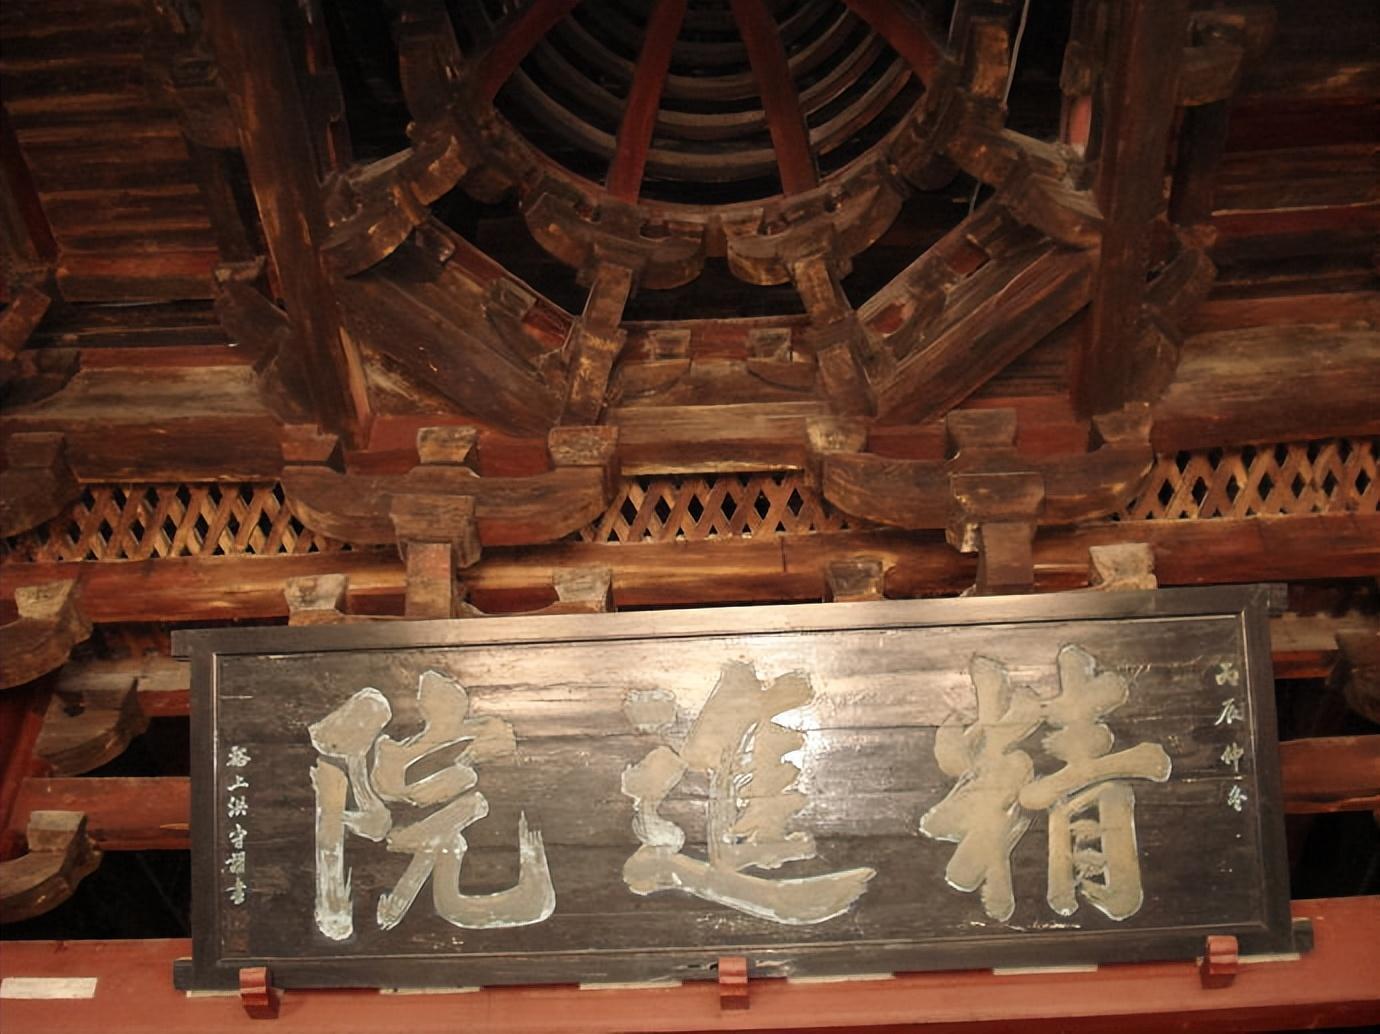 丙辰仲冬
精進院
谿上洪守謌書